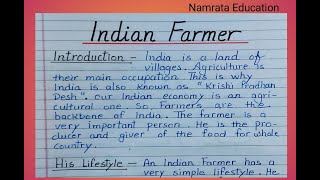 Namrata Education
Indian Farmer
Introduction - India is a land of
villages. Agriculture is
their main occupation. This is why
India is also known as "Krishi Pradhan
Desh". Our Indian economy is an agri-
cultural one. So, Farmers are the
backbone of India. The farmer is a
very important person. He is the pro-
ducer and giver of the food for whole
country.
His Lifestyle - An Indian Farmer has a
very simple lifestyle. He